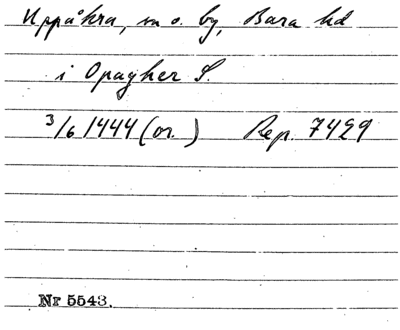 Uppåkra, sn o. by, Bara hd
i Opagher S.
3/6 1444 (or.) Rep. 7429
Nr 5543.